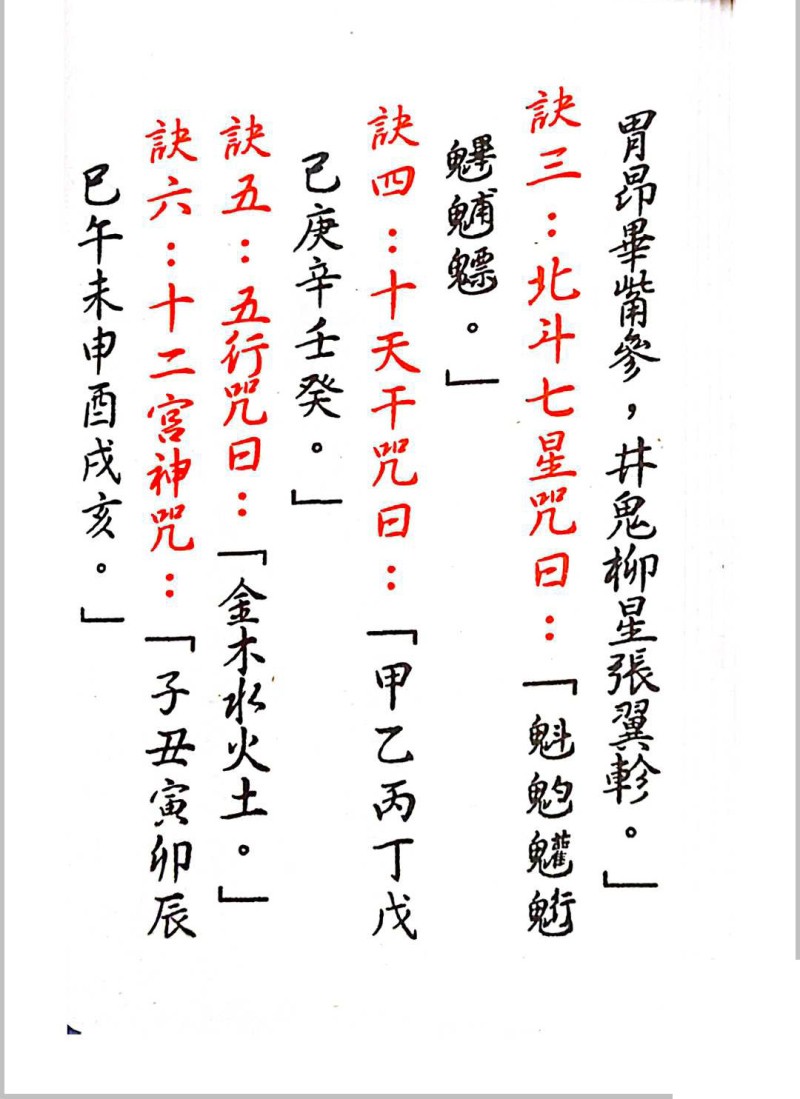 胃昴畢觜參，井鬼柳星張翼軫。」
訣三：北斗七星咒曰：「魁魓䰡䰢
魓魒。」
訣四：十天干咒曰：「甲乙丙丁戊
己庚辛壬癸。」
訣五：五行咒曰：「金木水火土。」
訣六：十二宮神咒：「子丑寅卯辰
巳午未申酉戌亥。」